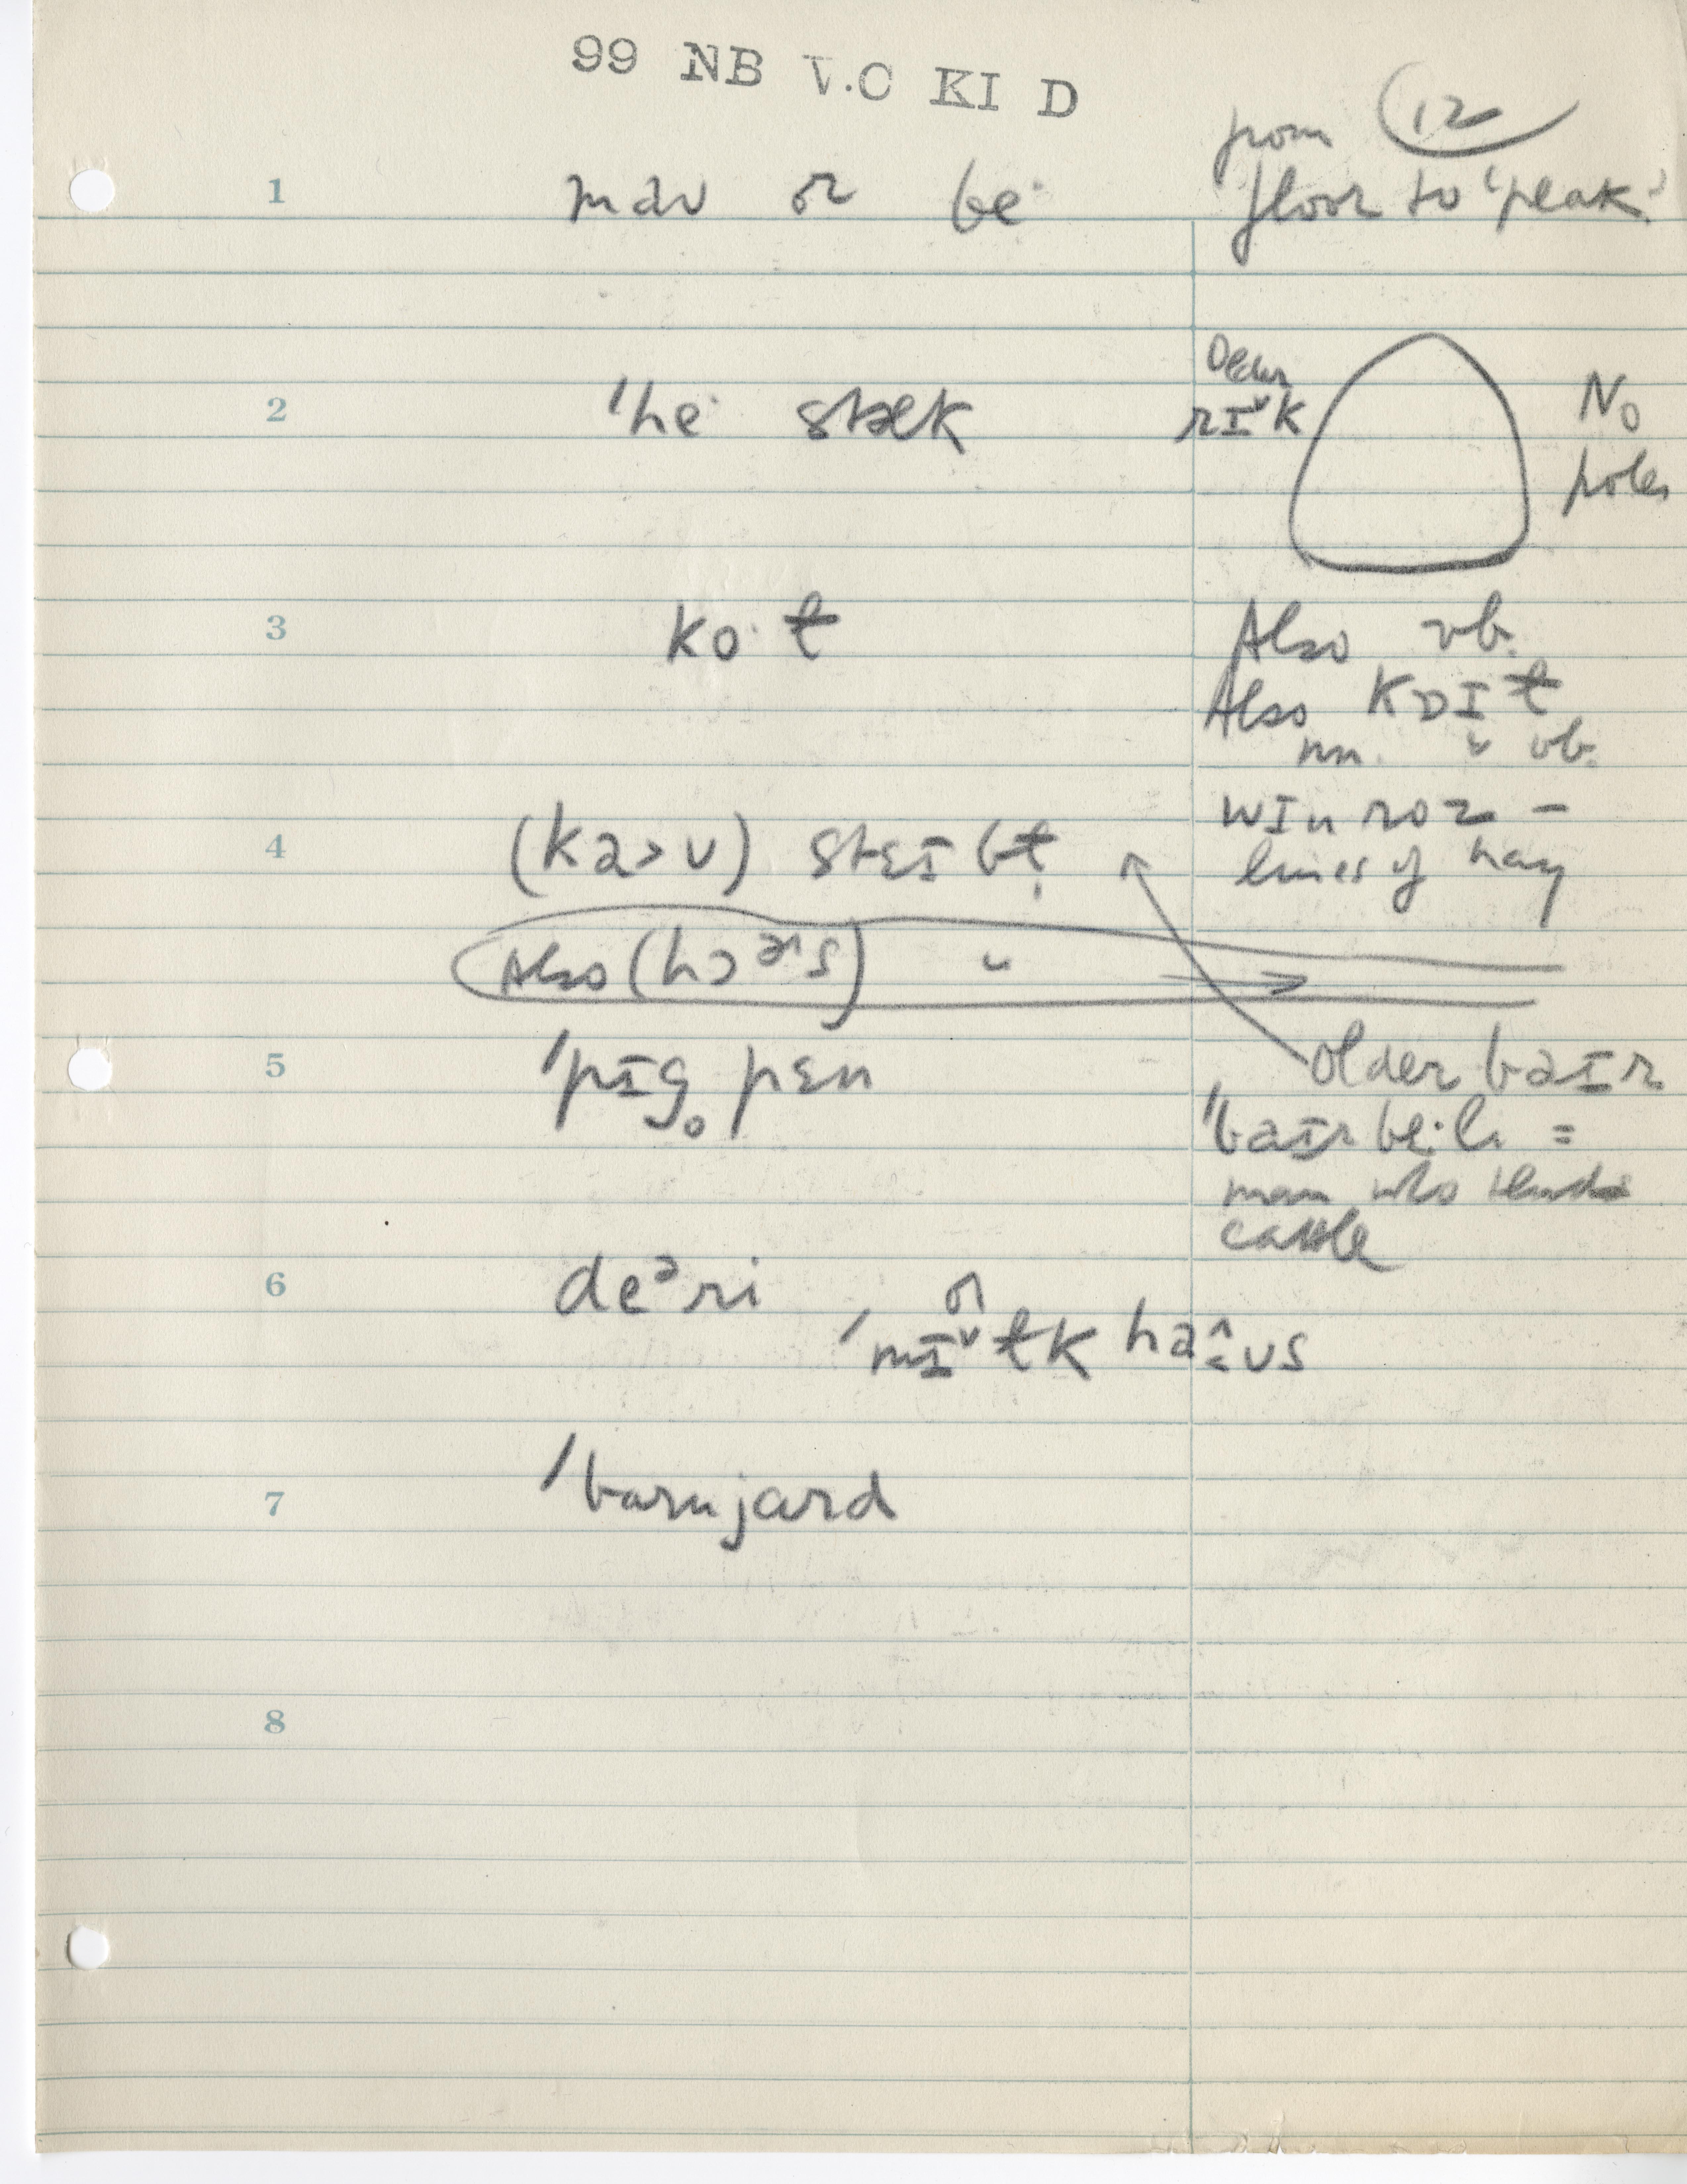 99 NB V.C KI D
12
1 maʊ or be·
from floor to 'peak'
2 ˈhe· stæk
Older rɪˇk
No poles
3 ko·ɫ
Also vb.
Also kɒɪɫ
nn. " vb.
4 (ka>ʊ) steɪbɫ̩
wɪnroz –
lines of hay
Also (hɔᵊ^s) "
5 ˈpɪg̥pɛn
older baɪr
ˈbaɪrbe·li =
man who tends
cattle
6 deᵊri or
ˈmɪˇɫk ha^ʊs
7 ˈbarnjard
8